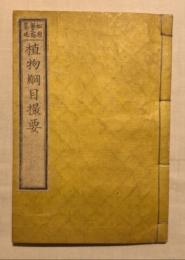 植物綱目撮要